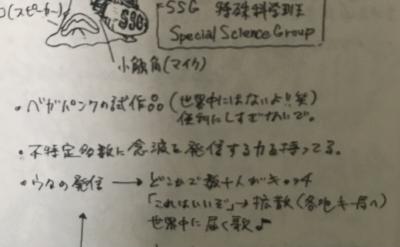 コ(スピーカー)
SSG
SSG 特殊科学班
Special Science Group
小触角(マイク)
・ベガパンクの試作品 (世界中にはないよ!!笑)
便利にしすぎないで。
・不特定多数に念波を発信する力を持ってる。
・ウタの発信 → どこかで数十人がキャッチ
「これはいいぞ」→ 拡散 (各地キー局へ)
世界中に届く歌♪